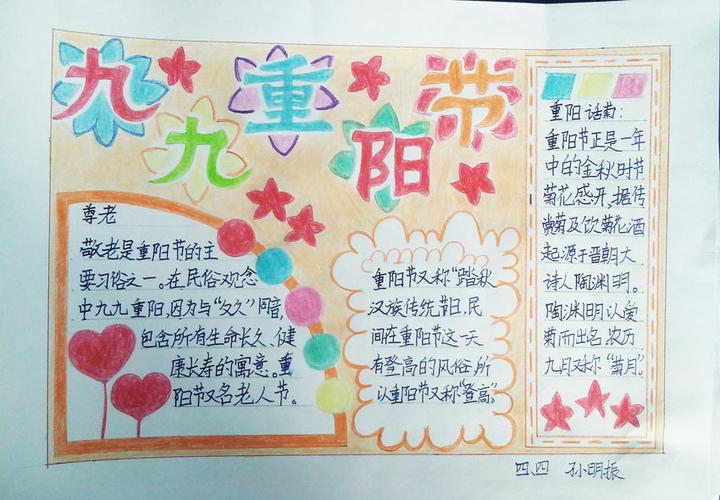 九九重阳节
尊老
敬老是重阳节的主
要习俗之一。在民俗观念
中九九重阳,因为与“久久”同音,
包含所有生命长久、健
康长寿的寓意。重
阳节又名老人节。
重阳节又称“踏秋
汉族传统节日,民
间在重阳节这一天
有登高的风俗,所
以重阳节又称“登高”
重阳话菊:
重阳节正是一年
中的金秋时节
菊花盛开,据传
赏菊及饮菊花酒
起源于晋朝大
诗人陶渊明。
陶渊明以爱
菊而出名,农历
九月又称“菊月”
四四 孙明振